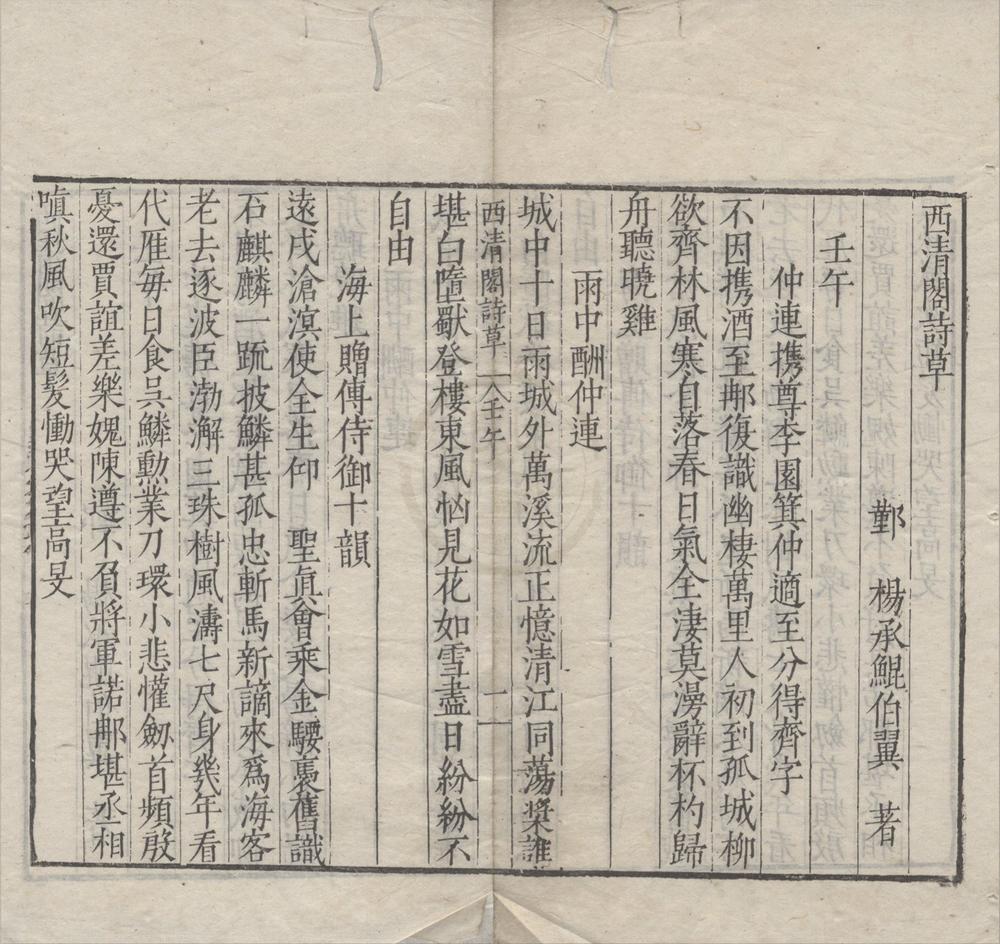 西清閣詩草
鄞　楊承鯤伯翼　著
壬午
仲連携尊李園箕仲適至分得齊字
不因携酒至那復識幽棲萬里人初到孤城柳
欲齊林風寒自落春日氣全淒莫漫辭杯杓歸
舟聽曉雞
雨中酬仲連
城中十日雨城外萬溪流正憶清江同蕩槳誰
西清閣詩草　八壬午　一
堪白墮獸登樓東風惱見花如雪盡日紛紛不
自由
海上贈傅侍御十韻
遠戍滄溟使全生仰　聖眞會乘金騕褭舊識
石麒麟一䟽披鱗甚孤忠斬馬新謫來爲海客
老去逐波臣渤澥三珠樹風濤七尺身幾年看
代雁每日食吳鱗勲業刀環小悲懽劒首頻殷
憂還賈誼差樂媿陳遵不負將軍諾那堪丞相
嗔秋風吹短髮慟哭望高旻